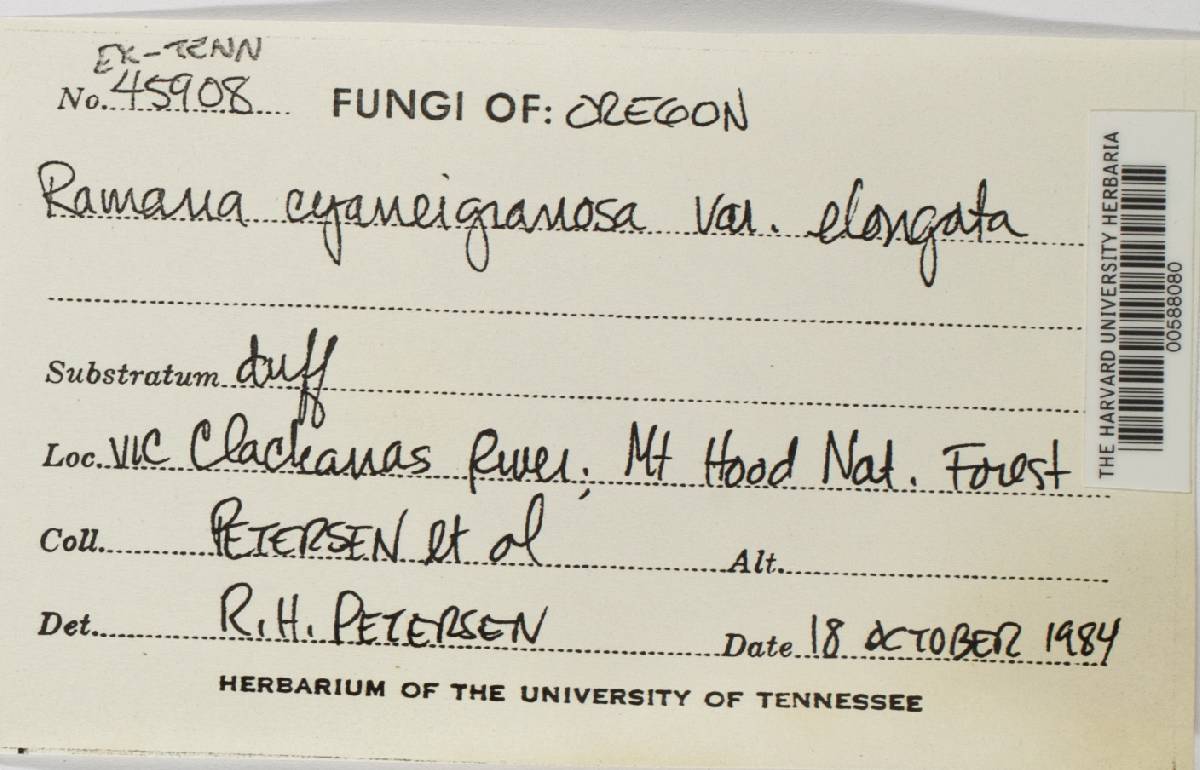 EX-TENN
No. 45908 FUNGI OF: OREGON
Ramaria cyaneigranosa var. elongata
Substratum duff
Loc. VIC Clackamas River; Mt Hood Nat. Forest
Coll. PETERSEN et al Alt.
Det. R.H. PETERSEN Date 18 OCTOBER 1984
HERBARIUM OF THE UNIVERSITY OF TENNESSEE
THE HARVARD UNIVERSITY HERBARIA
00588080